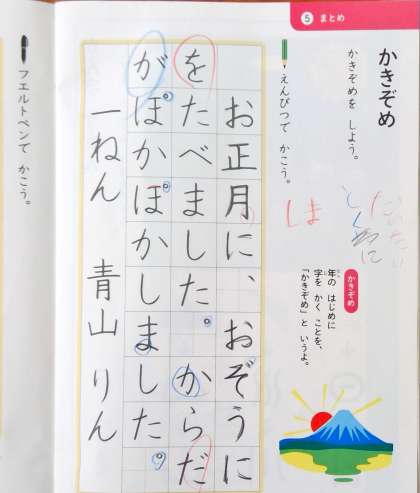 5 まとめ
かきぞめ
かきぞめを しよう。
かきぞめ
年の はじめに
字を かく ことを、
「かきぞめ」と いうよ。
えんぴつで かこう。
しま
お正月に、おぞうに
をたべました。からだ
がぽかぽかしました。
一ねん 青山 りん
フエルトペンで かこう。